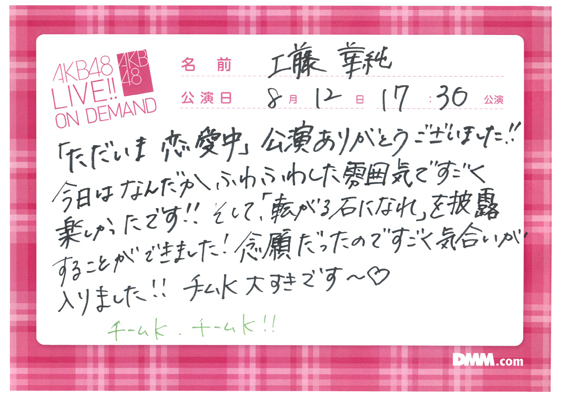 AKB48
LIVE!!
ON DEMAND
AKB
48
名前 工藤 華純
公演日 8月12日 17:30公演
「ただいま 恋愛中」公演ありがとうございました!!
今日はなんだか、ふわふわした雰囲気ですごく
楽しかったです!! そして、「転がる石になれ」を披露
することができました! 念願だったのですごく気合いが
入りました!! チムK 大すきです〜♡
チームK.チームK!!
DMM.com